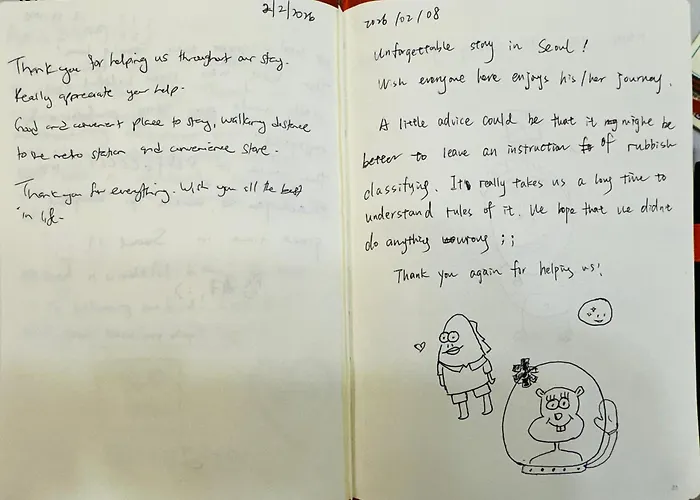 2/2/2026
Thank you for helping us throughout our stay.
Really appreciate your help.
Good and convenient place to stay, walking distance
to the metro station and convenience store.
Thank you for everything. Wish you all the best
in life.
2026/02/08
Unforgettable stay in Seoul!
Wish everyone here enjoys his/her journey.
A little advice could be that it might be
better to leave an instruction of rubbish
classifying. It really takes us a long time to
understand rules of it. We hope that we didn't
do anything wrong ; ;
Thank you again for helping us!